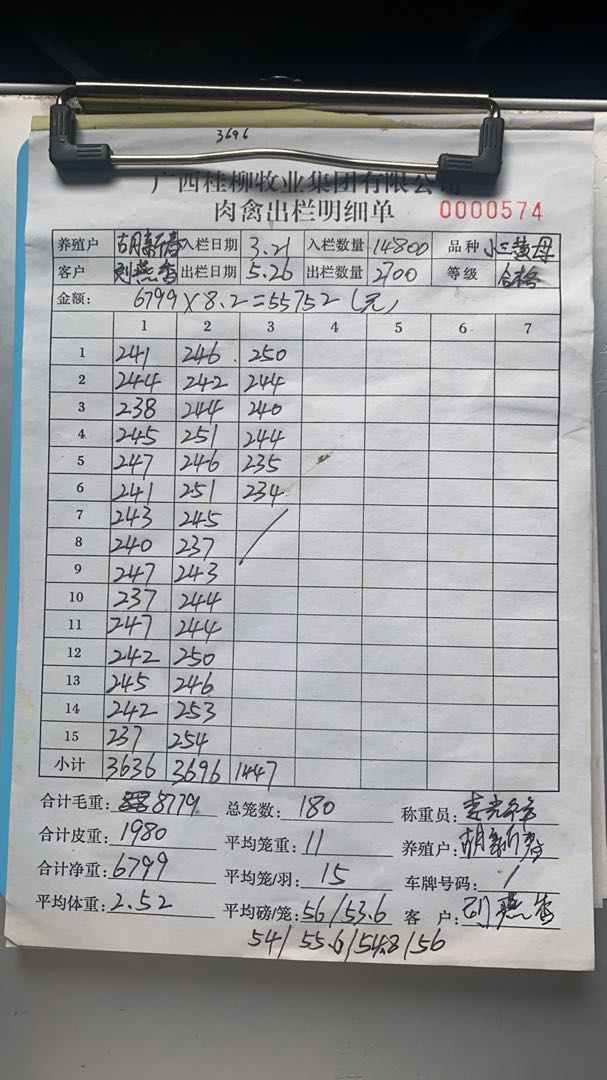 3696
广西桂柳牧业集团有限公司
肉禽出栏明细单 0000574
养殖户 胡新春 入栏日期 3.21 入栏数量 14800 品种
客户 刘燕香 出栏日期 5.26 出栏数量 2700 等级 合格
金额: 6799×8.2=55752(元)
1 2 3 4 5 6 7
1 241 246 250
2 244 242 244
3 238 244 240
4 245 251 244
5 247 246 235
6 241 251 234
7 243 245
8 240 237
9 247 243
10 237 244
11 247 244
12 242 250
13 245 246
14 242 253
15 237 254
小计 3636 3696 1447
合计毛重: 8779 总笼数: 180 称重员:
合计皮重: 1980 平均笼重: 11 养殖户: 胡新春
合计净重: 6799 平均笼/羽: 15 车牌号码: /
平均体重: 2.52 平均磅/笼: 56/53.6 客户: 刘燕香
54/55.6/54.8/56